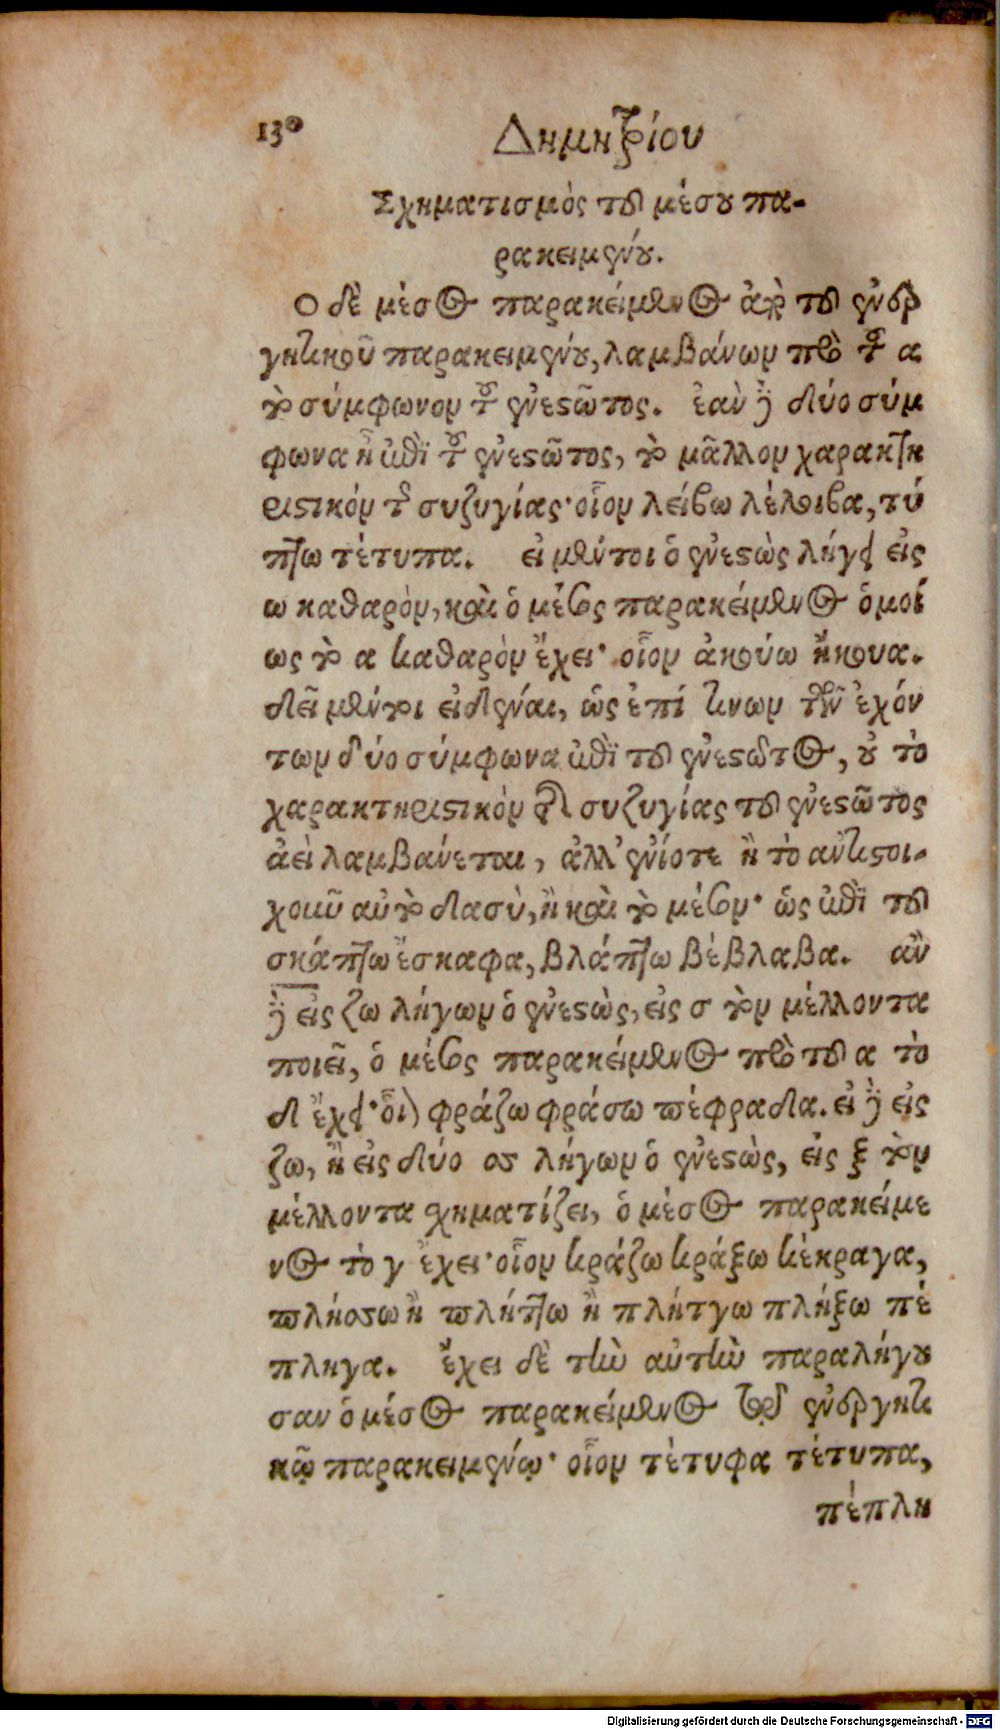 130 Δημητρίου
Σχηματισμὸς τοῦ μέσου πα-
ρακειμένου.
Ο δὲ μέσος παρακείμενος ἀπὸ τοῦ ἐνερ
γητικοῦ παρακειμένου, λαμβάνων πρὸ τοῦ α
τὸ σύμφωνον τοῦ ἐνεστῶτος. ἐὰν δὲ δύο σύμ
φωνα ἦ ἐπὶ τοῦ ἐνεστῶτος, τὸ μᾶλλον χαρακτη
ριστικόν τῆς συζυγίας· οἷον λείβω λέλοιβα, τύ
πτω τέτυπα. εἰ μέντοι ὁ ἐνεστὼς λήγει εἰς
ω καθαρὸν, καὶ ὁ μέσος παρακείμενος ὁμοί
ως τὸ α καθαρὸν ἔχει· οἷον ἀκούω ἤκουα.
δεῖ μέντοι εἰδέναι, ὡς ἐπί τινων τῶν ἐχόν
των δύο σύμφωνα ἐπὶ τοῦ ἐνεστῶτος, οὐ τὸ
χαρακτηριστικὸν τῆς συζυγίας τοῦ ἐνεστῶτος
ἀεὶ λαμβάνεται, ἀλλ' ἐνίοτε ἢ τὸ ἀντιστοι-
χοῦν αὐτὸ δασὺ, ἢ καὶ τὸ μέσον· ὡς ἐπὶ τοῦ
σκάπτω ἔσκαφα, βλάπτω βέβλαβα. ἂν
δὲ εἰς ζω λήγων ὁ ἐνεστὼς, εἰς σ τὸν μέλλοντα
ποιεῖ, ὁ μέσος παρακείμενος πρὸ τοῦ α τὸ
δ ἔχει· οἷον φράζω φράσω πέφραδα. εἰ δὲ εἰς
ζω, ἢ εἰς δύο σσ λήγων ὁ ἐνεστὼς, εἰς ξ τὸν
μέλλοντα σχηματίζει, ὁ μέσος παρακείμε
νος τὸ γ ἔχει· οἷον κράζω κράξω κέκραγα,
πλήσσω ἢ πλήττω ἢ πλήτγω πλήξω πέ
πληγα. ἔχει δὲ τὴν αὐτὴν παραλήγου
σαν ὁ μέσος παρακείμενος τῷ ἐνεργητι
κῷ παρακειμένῳ· οἷον τέτυφα τέτυπα,
πέπλη
Digitalisierung gefördert durch die Deutsche Forschungsgemeinschaft - DFG